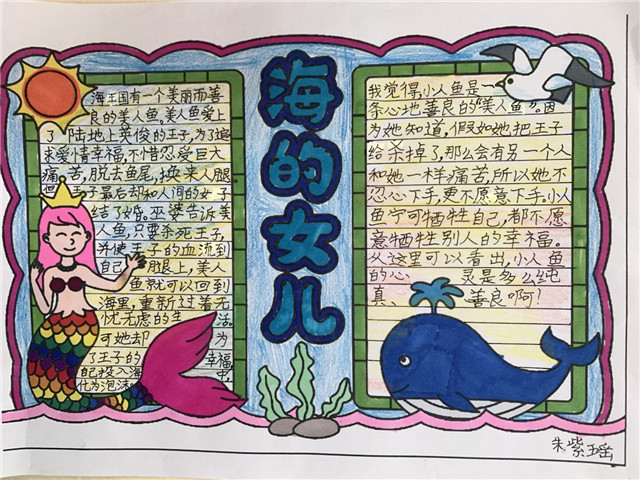 海王国有一个美丽而善
良的美人鱼。美人鱼爱上
了陆地上英俊的王子,为了追
求爱情幸福,不惜忍受巨大
痛苦,脱去鱼尾,换来人腿。
但王子最后却和人间的女子
结了婚。巫婆告诉美
人鱼,只要杀死王子,
并使王子的血流到
自己腿上,美人
鱼就可以回到
海里,重新过着无
忧无虑的生活
可她却为
了王子的幸福,
自己投入海中
化为泡沫
海的女儿
我觉得,小人鱼是一
条心地善良的“美人鱼”。因
为她知道,假如她把王子
给杀掉了,那么会有另一个人
和她一样痛苦,所以她不
忍心下手,更不愿意下手。小人
鱼宁可牺牲自己,都不愿
意牺牲别人的幸福。
从这里可以看出,小人鱼
的心灵是多么纯
真善良啊?
朱紫瑶